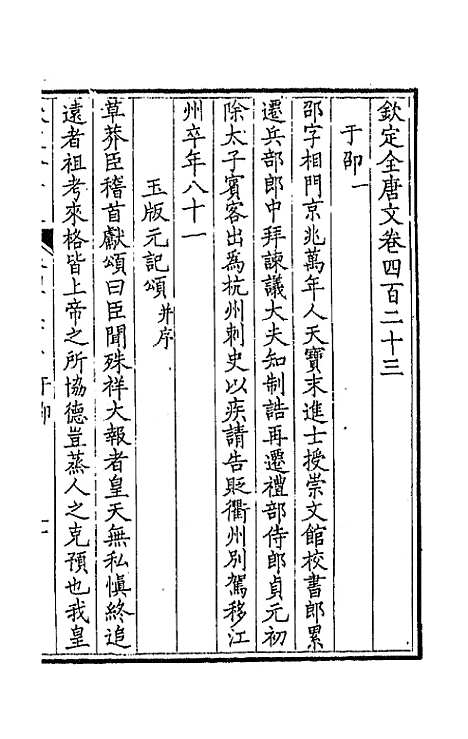 欽定全唐文卷四百二十三
于邵一
邵字相門京兆萬年人天寶末進士授崇文館校書郎累
遷兵部郎中拜諫議大夫知制誥再遷禮部侍郎貞元初
除太子賓客出為杭州刺史以疾請告貶衢州別駕移江
州卒年八十一
玉版元記頌并序
草莽臣稽首獻頌曰臣聞殊祥大報者皇天無私愼終追
遠者祖考來格皆上帝之所協德豈蒸人之克預也我皇